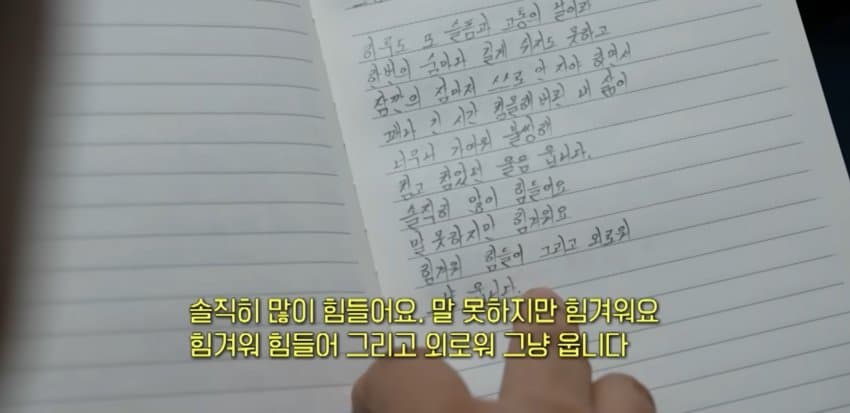 하루도 또 슬픔과 고통이 밀려와
한번의 숨마저 쉽게 쉬지도 못하고
잠깐의 잠마저 스스로 안 자야 하면서
꽤나 긴 시간 침울해버린 내 삶이
너무나 가여워 불쌍해
참고 참았던 울음 웁니다.
솔직히 많이 힘들어요
말 못하지만 힘겨워요
힘겨워 힘들어 그리고 외로워
웁니다.
솔직히 많이 힘들어요. 말 못하지만 힘겨워요
힘겨워 힘들어 그리고 외로워 그냥 웁니다